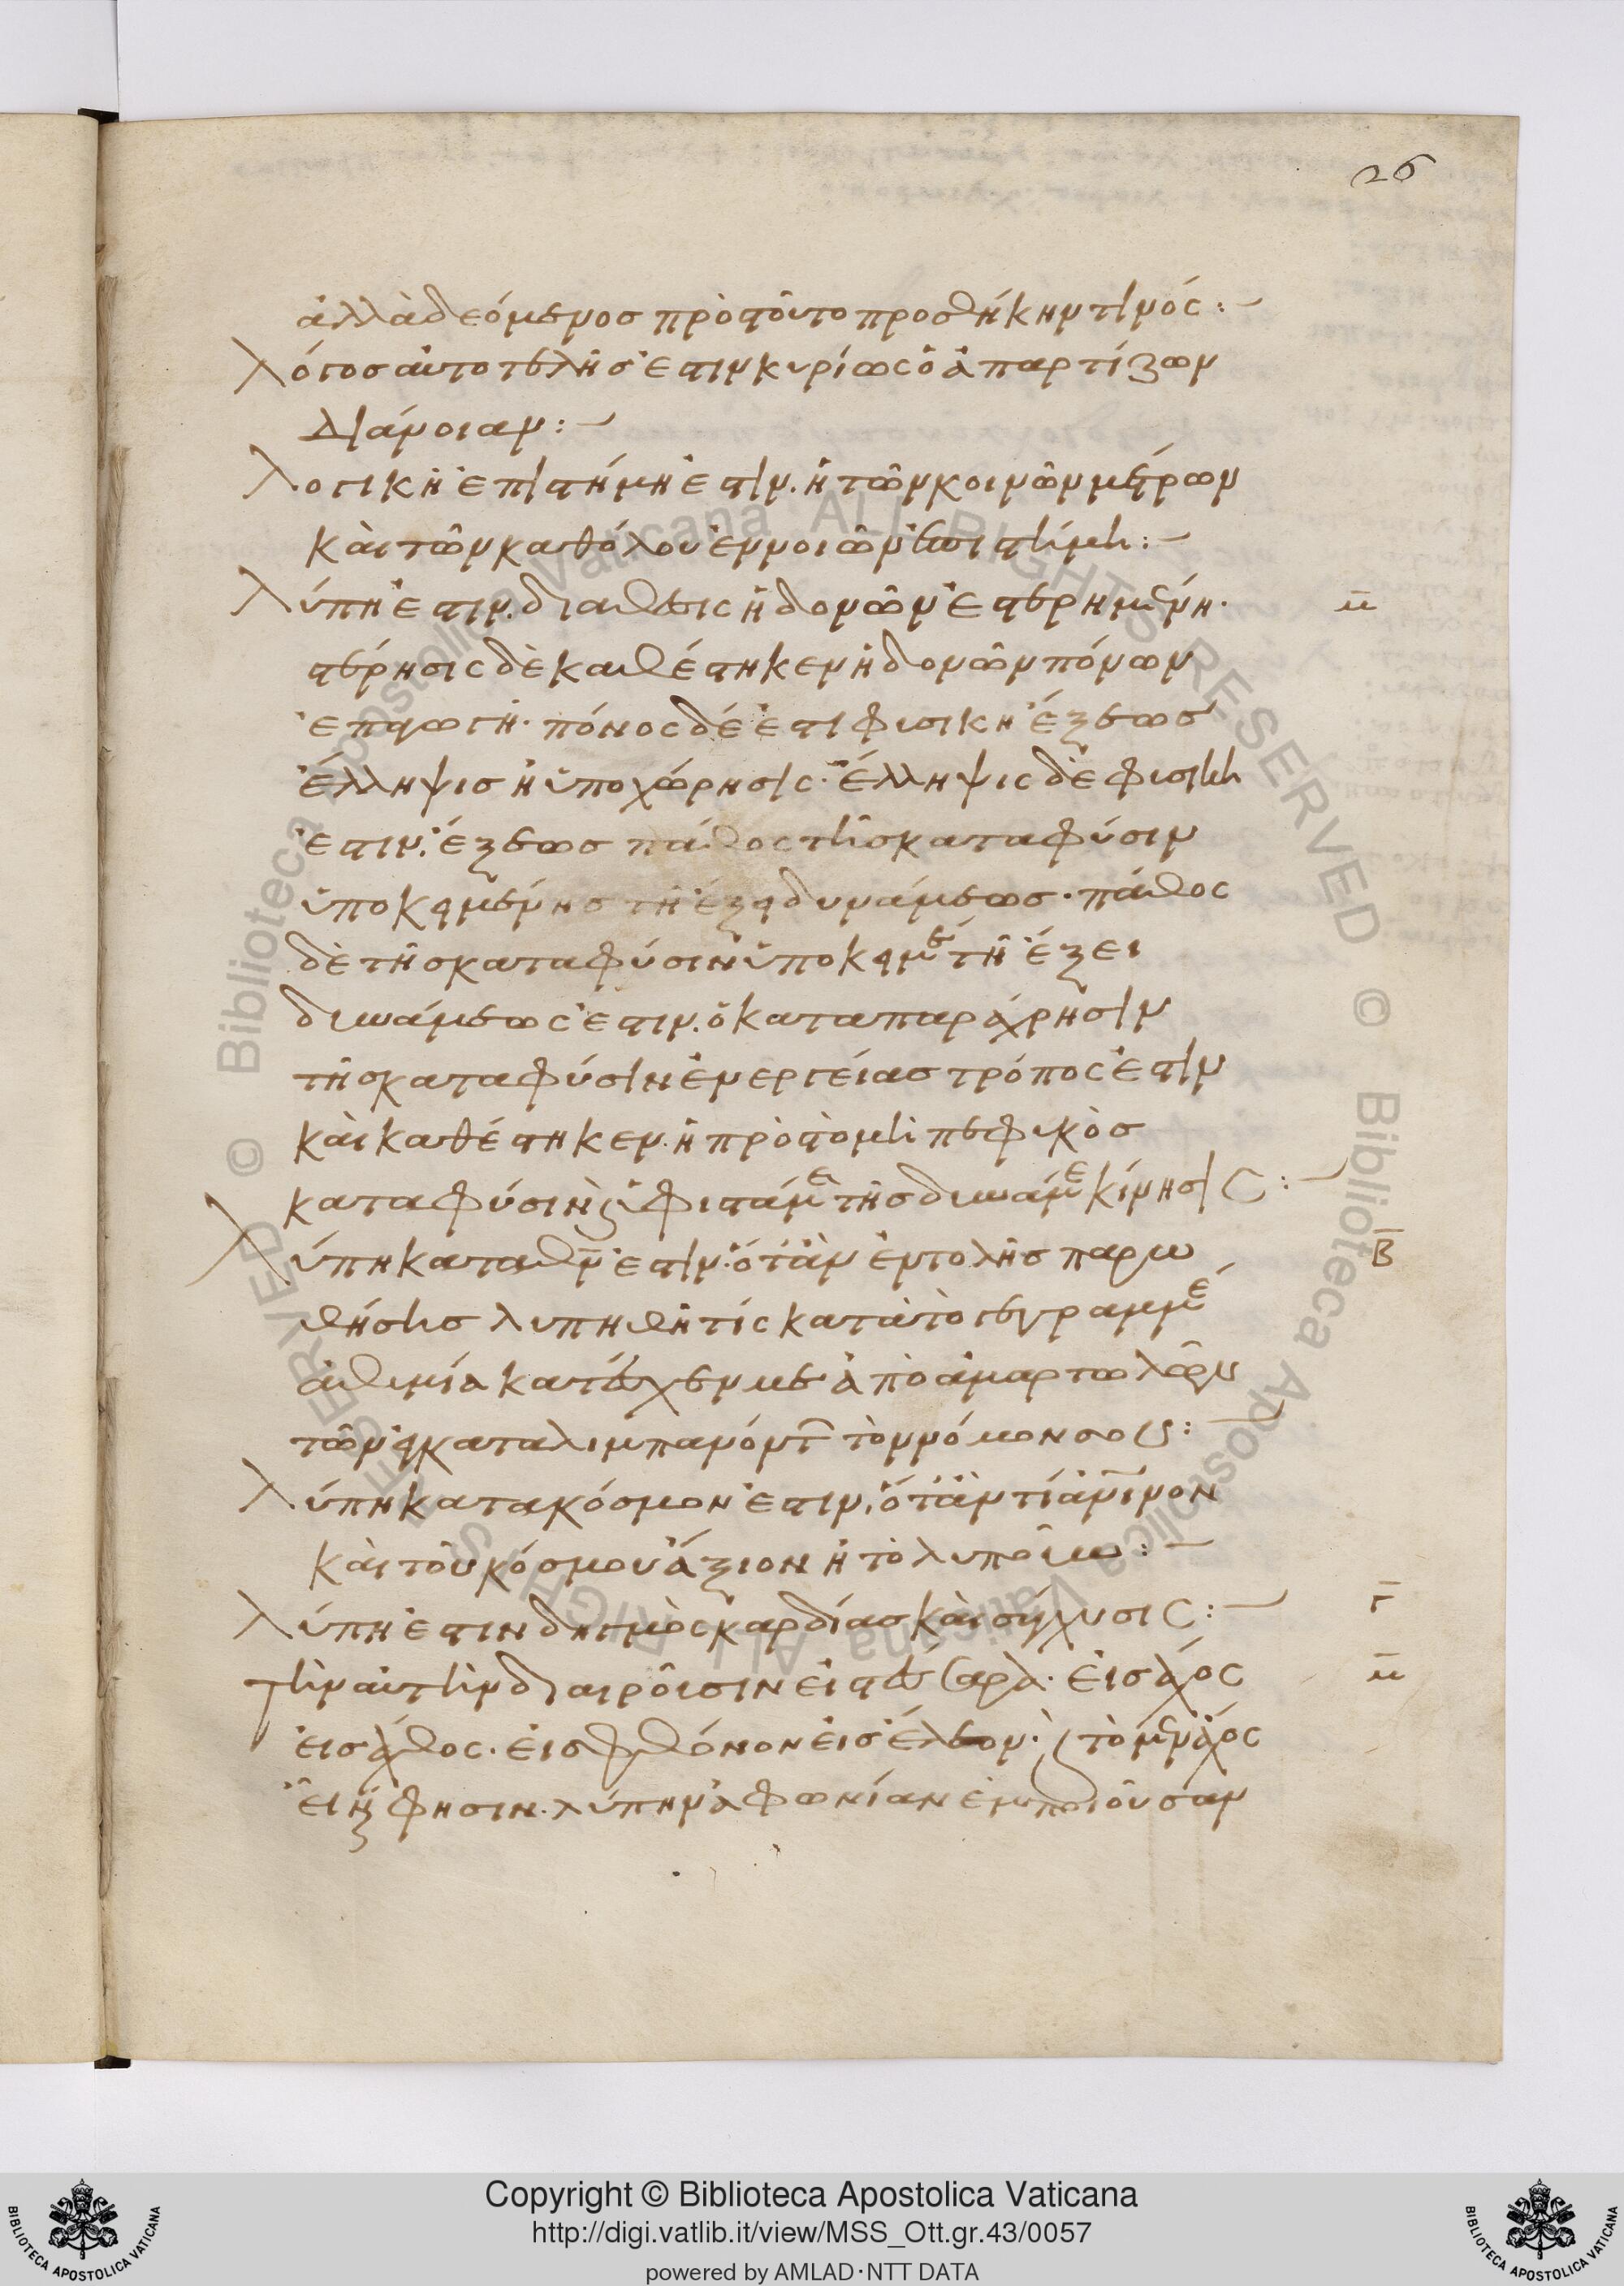 26
ἀλλὰ δεόμενος πρὸς τοῦτο προσθήκην τινός :~
Λόγος αὐτοτελής ἐστιν κυρίως ὁ ἀπαρτίζων
διάνοιαν :~
Λογικὴ ἐπιστήμη ἐστίν. ἡ τῶν κοινῶν μέτρων
καὶ τῶν καθόλου ἐννοιῶν ἐπιστήμη :~
Λύπη ἐστιν. διάθεσις ἡδονῶν ἐστερημένη·
στέρησις δὲ καθέστηκεν ἡδονῶν πόνων
ἐπαγωγή· πόνος δέ ἐστι φυσικῆ ἕξεως
ἔλλειψις ἢ ὑποχώρησις· ἔλλειψις δὲ φυσικῆ
ἐστιν. ἕξεως πάθος τῆς κατα φύσιν
ὑποκειμένης τῆ ἕξει δυνάμεως· πάθος
δὲ τῆς κατα φύσιν ὑποκειμέ τῆ ἕξει
δυνάμεως ἐστιν. ὁ κατα παράχρησιν
τῆς κατα φύσιν ἐνεργείας τρόπος ἐστιν
καὶ καθέστηκεν. ἡ πρὸς τὸ μὴ πεφυκὸς
κατα φύσιν ὑφισταμε τῆς δυνάμε κίνησις :~
Λύπη κατα θν ἐστιν. ὅτἂν ἐντολῆς παρω
θήσης λυπηθῆ τίς κατὰ τὸ γεγραμμέ
ἀθυμία κατέσχεν με ἀπὸ ἁμαρτωλῶν
τῶν ἐγκαταλιμπανόντ τὸν νόμον σου :~
Λύπη κατα κόσμον ἐστιν. ὅτἂν τί ἀνινον
καὶ τοῦ κόσμου ἄξιον ἦ τὸ λυποῦν :~
Λύπη ἐστιν δηγμὸς καρδίας καὶ σύγχυσις :~
τὴν αὐτὴν διαιροῦσιν εἰς τέσσαρα· εἰς ἄχος
εἰς ἄχθος· εἰς φθόνον εἰς ἔλεον· τὸ μὲν ἄχος
εἶναι φησιν. λύπην ἀφωνίαν ἐμποιοῦσαν
Β
Γ
Copyright © Biblioteca Apostolica Vaticana
http://digi.vatlib.it/view/MSS_Ott.gr.43/0057
powered by AMLAD·NTT DATA
BIBLIOTECA APOSTOLICA VATICANA
BIBLIOTECA APOSTOLICA VATICANA
© Biblioteca Apostolica Vaticana ALL RIGHTS RESERVED
© Biblioteca Apostolica Vaticana ALL RIGHTS RESERVED